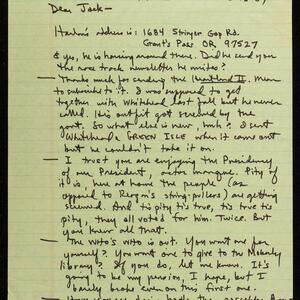 Dear Jack—
address is: 1684 Stringer Gap Rd.
Grant's Pass OR 97527
& yes, he is having around there. Did he send you
the race track newsletter he writes?
— Thanks much for sending the Heartland II. Mean
to subscribe to it. I was supposed to get
together with Whitehead last fall but he never
called. His outfit got screwed by the
govt. So what else is new, huh? I sent
Whitehead a GREEN ISLE when it came out
but he couldn't take it on.
— I trust you are enjoying the Presidency
of our President, actor manque. Pity of
it is, here at home the people (as
opposed to Reagan's string-pullers) are getting
screwed. And 'tis pity 'tis true, 'tis true 'tis
pity, they all voted for him. Twice. But
you knew all that.
— The WHO's WHO is out. You want one for
yourself? You want one to give to the
library? If you do, let me know. It's
going to be my pension, I hope, but I
barely broke even on this first one.